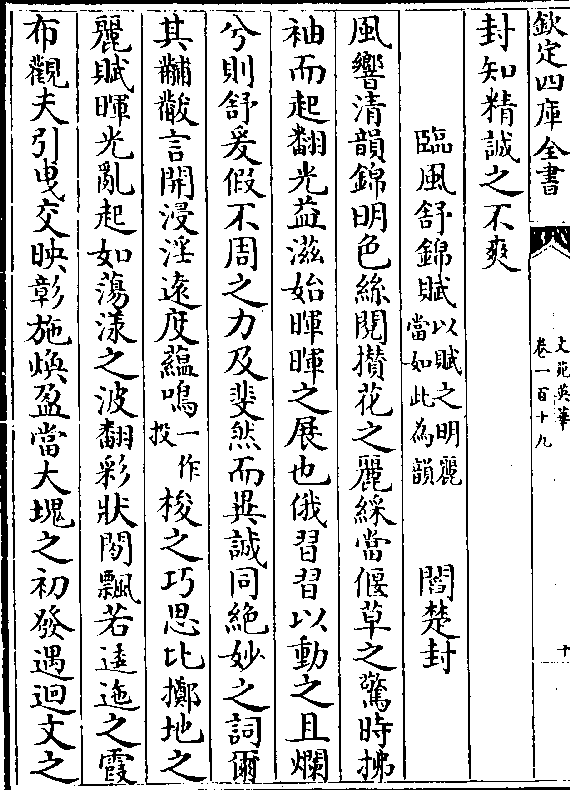 欽定四庫全書
文苑英華
卷一百十九
十
封知精誠之不爽
臨風舒錦賦以賦之明麗當如此為韻 閻楚封
風響清韻錦明色絲閱攅花之麗綵當偃草之驚時拂
袖而起翻光益滋始暉暉之展也俄習習以動之且爛
兮則舒爰假不周之力及斐然而異誠同絶妙之詞爾
其黼黻言開浸淫逺度藴鳴一作投梭之巧思比擲地之
麗賦暉光亂起如蕩漾之波翻彩狀閱飄若逶迤之霞
布觀夫引曳交映彰施煥盈當大塊之初發遇迴文之